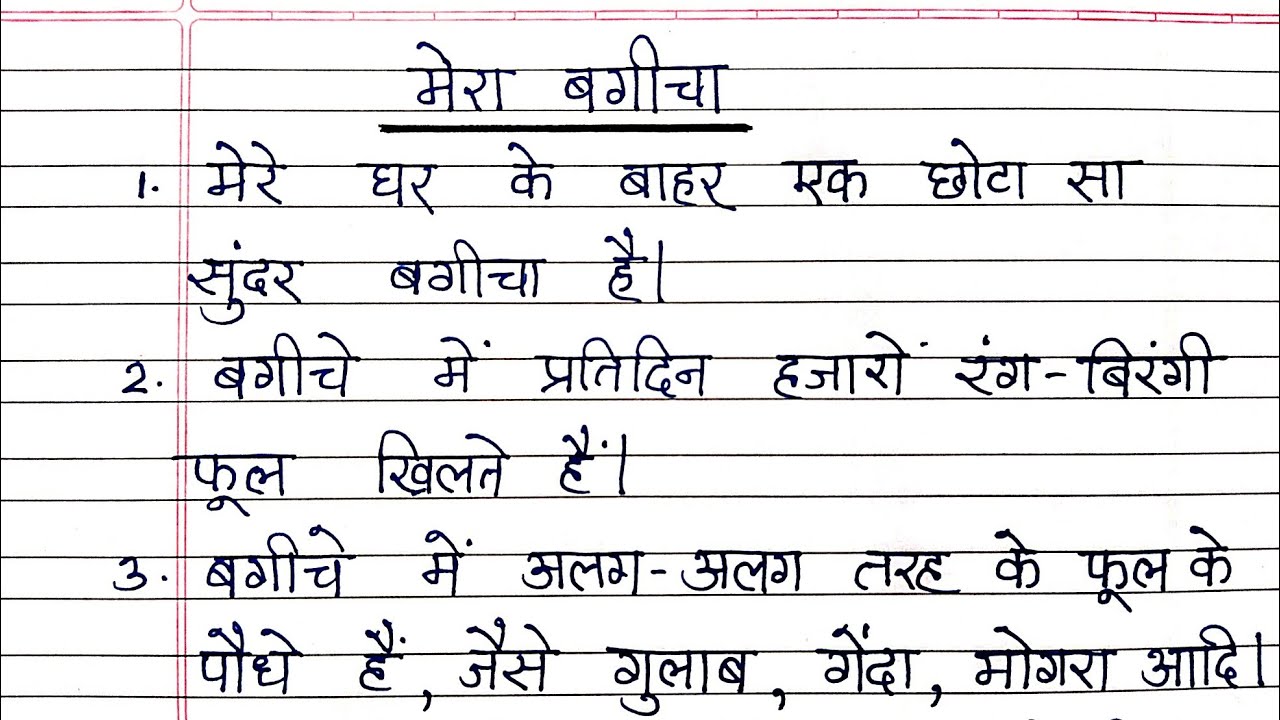 मेरा बगीचा
1. मेरे घर के बाहर एक छोटा सा
सुंदर बगीचा है।
2. बगीचे में प्रतिदिन हजारों रंग-बिरंगी
फूल खिलते हैं।
3. बगीचे में अलग-अलग तरह के फूल के
पौधे हैं, जैसे गुलाब, गेंदा, मोगरा आदि।